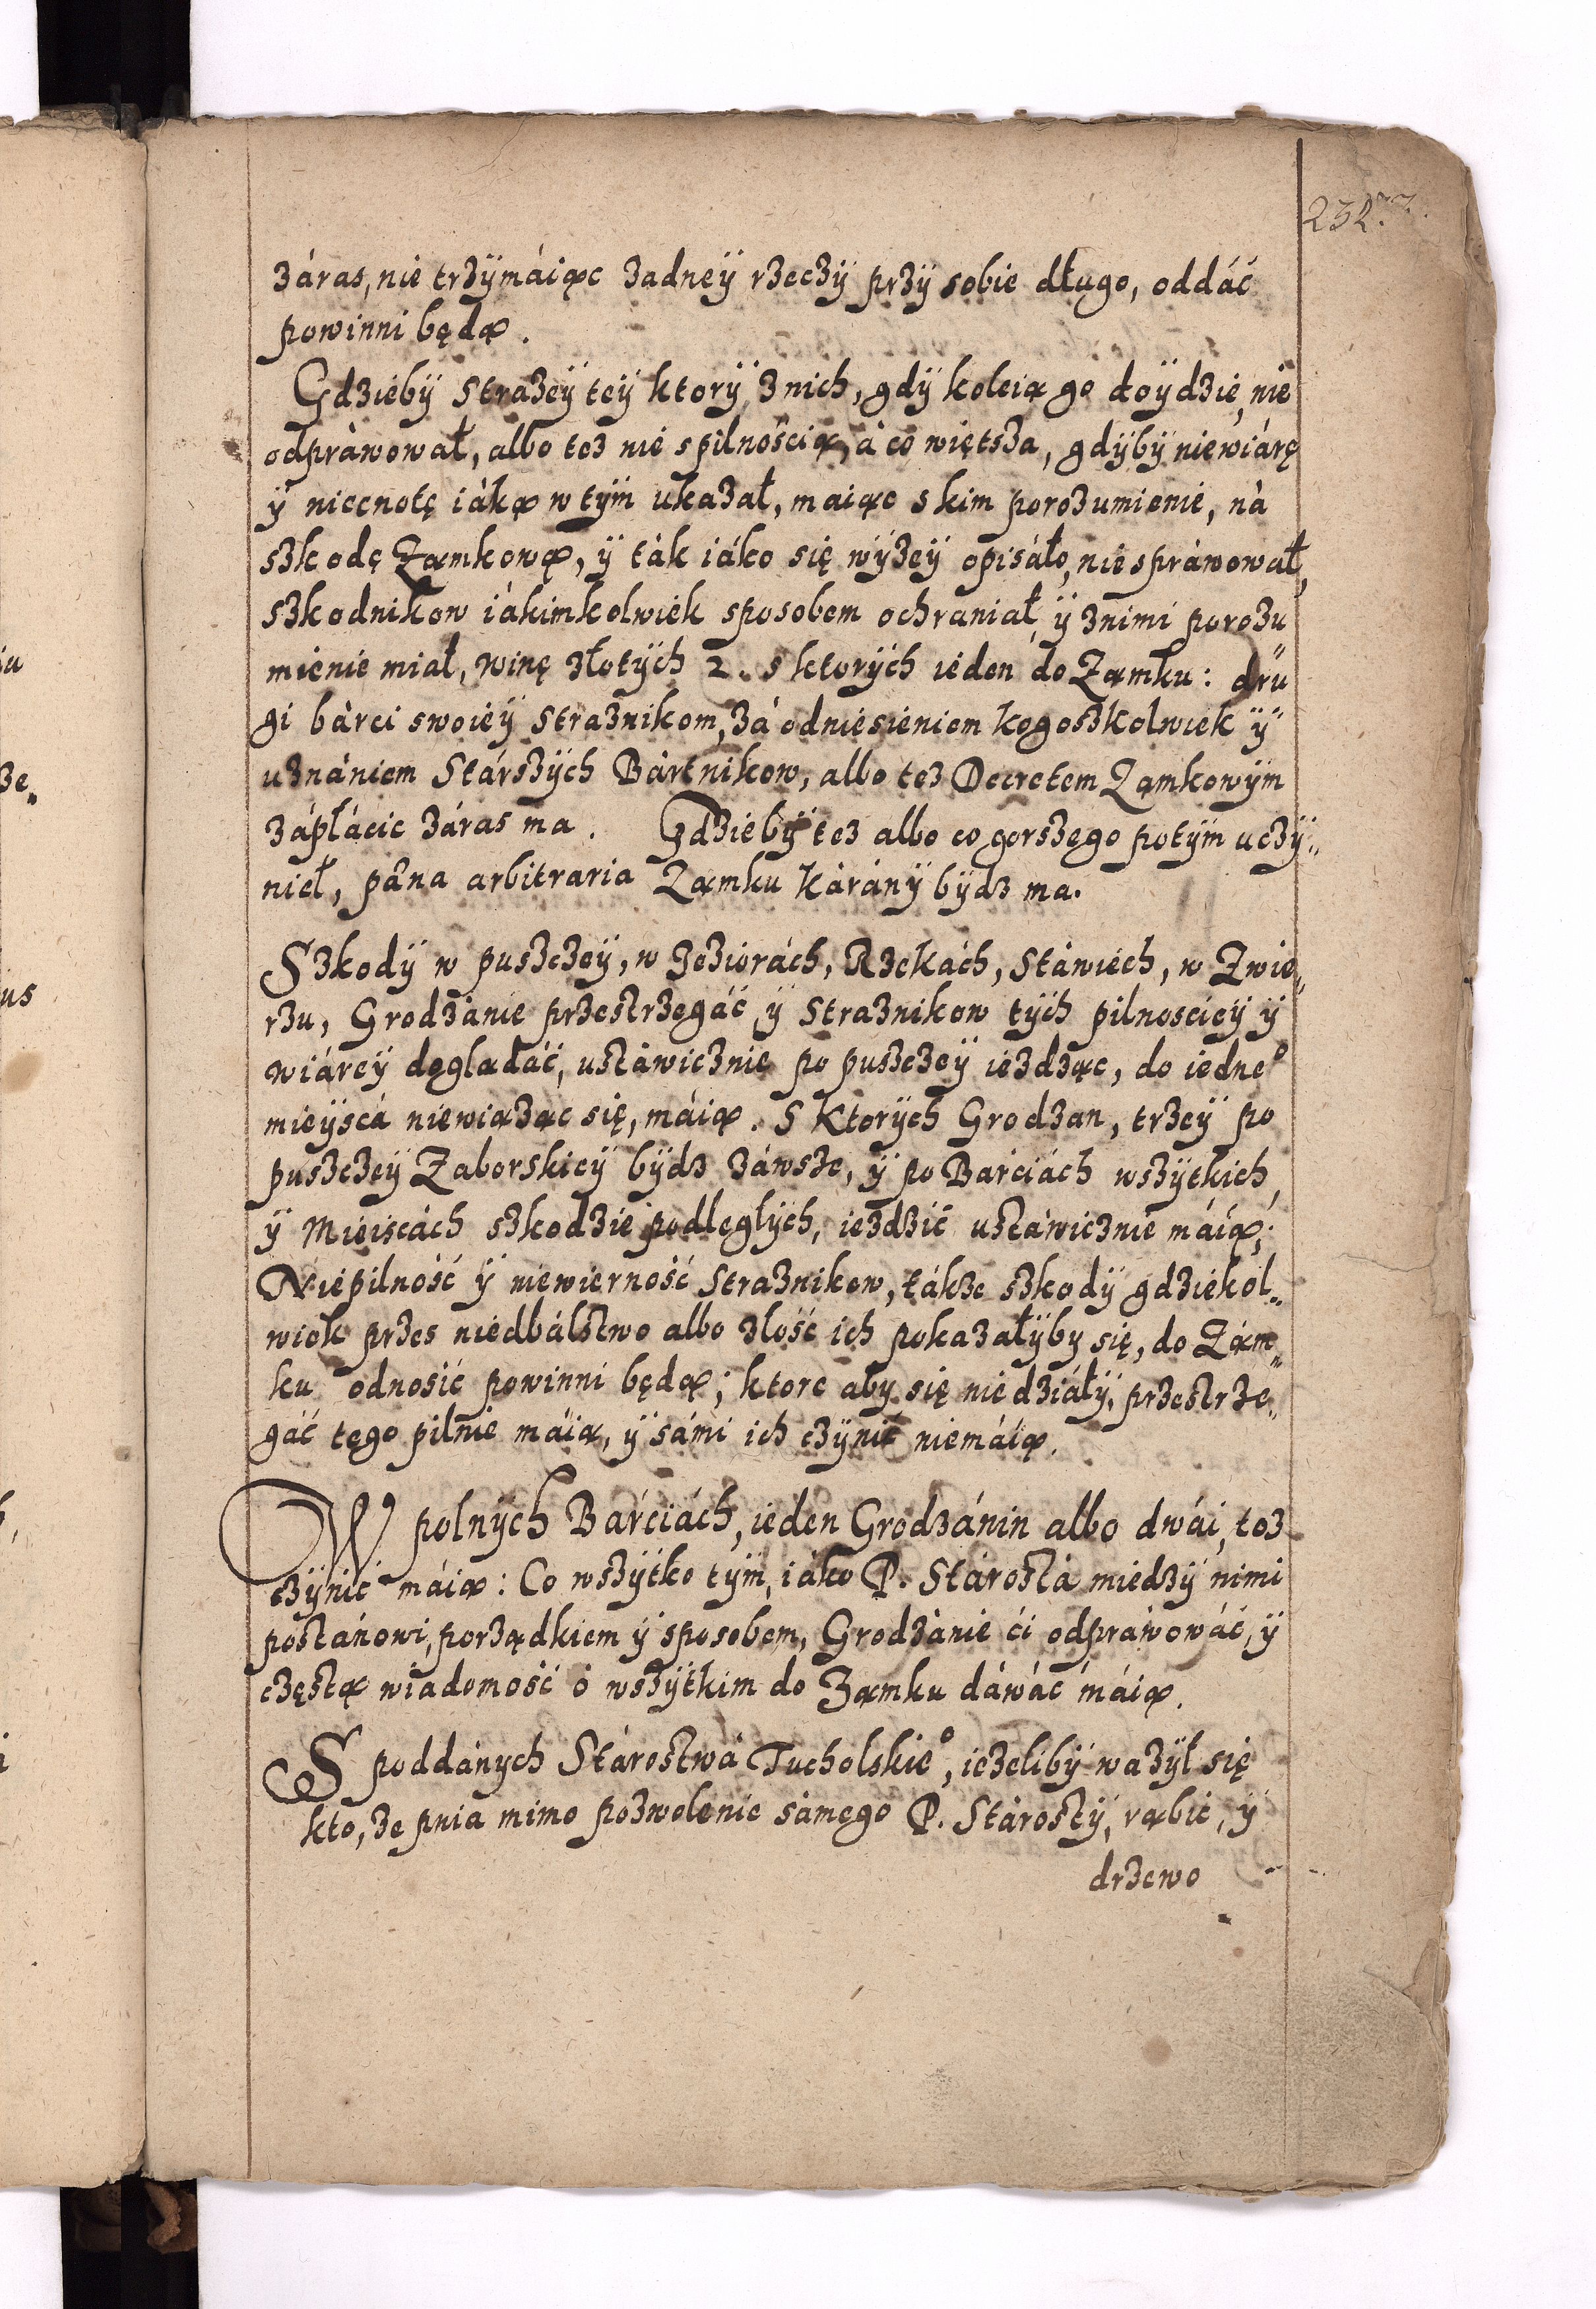 232.
záras, nie trzÿmáiąc zadneÿ rzeczÿ przÿ sobie długo, oddáć
powinni będą.
Gdzieby Strazeÿ teÿ ktorÿ z nich, gdÿ koleią go doÿdzie, nie
odpráwował, albo tez nie s pilnością, á co więtsza, gdÿbÿ niewiárę
ÿ niecnotę iáką w tÿm ukazał, maiąc s kim porozumienie, ná
szkodę Zamkową, ÿ ták iáko się wÿzeÿ opisáło, nie spráwował,
szkodnikow iákimkolwiek sposobem ochraniał, ÿ z nimi porozu
mienie miał, winę złotÿch 2. s ktorÿch ieden do Zamku: dru
gi bárci swoieÿ Straznikom, zá odniesieniem kogoszkolwiek ÿ
uznániem Stárszÿch Bártnikow, albo tez Decretem Zamkowÿm
zápłácic záras ma. Gdziebÿ tez albo co gorszego potÿm uczÿ„
nieł, pæna arbitraria Zamku káránÿ bÿdz ma.
Szkodÿ w puszczeÿ, w Jeziorách, Rzekách, Stáwiech, w Zwie„
rzu, Grodzánie przestrzegáć, ÿ Straznikow tÿch pilnościeÿ ÿ
wiáreÿ doglądáć, ustáwicznie po puszczeÿ iezdząc, do iedne°
mieÿscá niewiąząc się, máią. S Ktorÿch Grodzan, trzeÿ po
puszczeÿ Zaborskieÿ bÿdz záwsze, ÿ po Bárciách wszÿtkich,
ÿ Mieiscách szkodzie podległÿch, iezdzić ustáwicznie máią;
Niepilność ÿ niewierność Straznikow, tákze szkodÿ gdziekol„
wiek przes niedbálstwo albo złość ich pokazałÿby się, do Zam„
ku odnosić powinni będą; ktore aby się nie dziáłÿ, przestrze„
gáć tego pilnie máią, ÿ sámi ich czÿnić niemáią.
W polnÿch Bárciách, ieden Grodzánin albo dwái, toz
czÿnic máią: Co wszÿtko tÿm, iáko P. Stárostá miedzÿ nimi
postánowi, porządkiem ÿ sposobem, Grodzánie ći odpráwowáć, ÿ
częstą wiadomość o wszÿtkim do Zamku dáwáć máią.
S poddánych Stárostwá Tucholskie°, iezelibÿ wazÿł się
kto, ze pnia mimo pozwolenie sámego P. Stárostÿ, rąbić, ÿ
drzewo